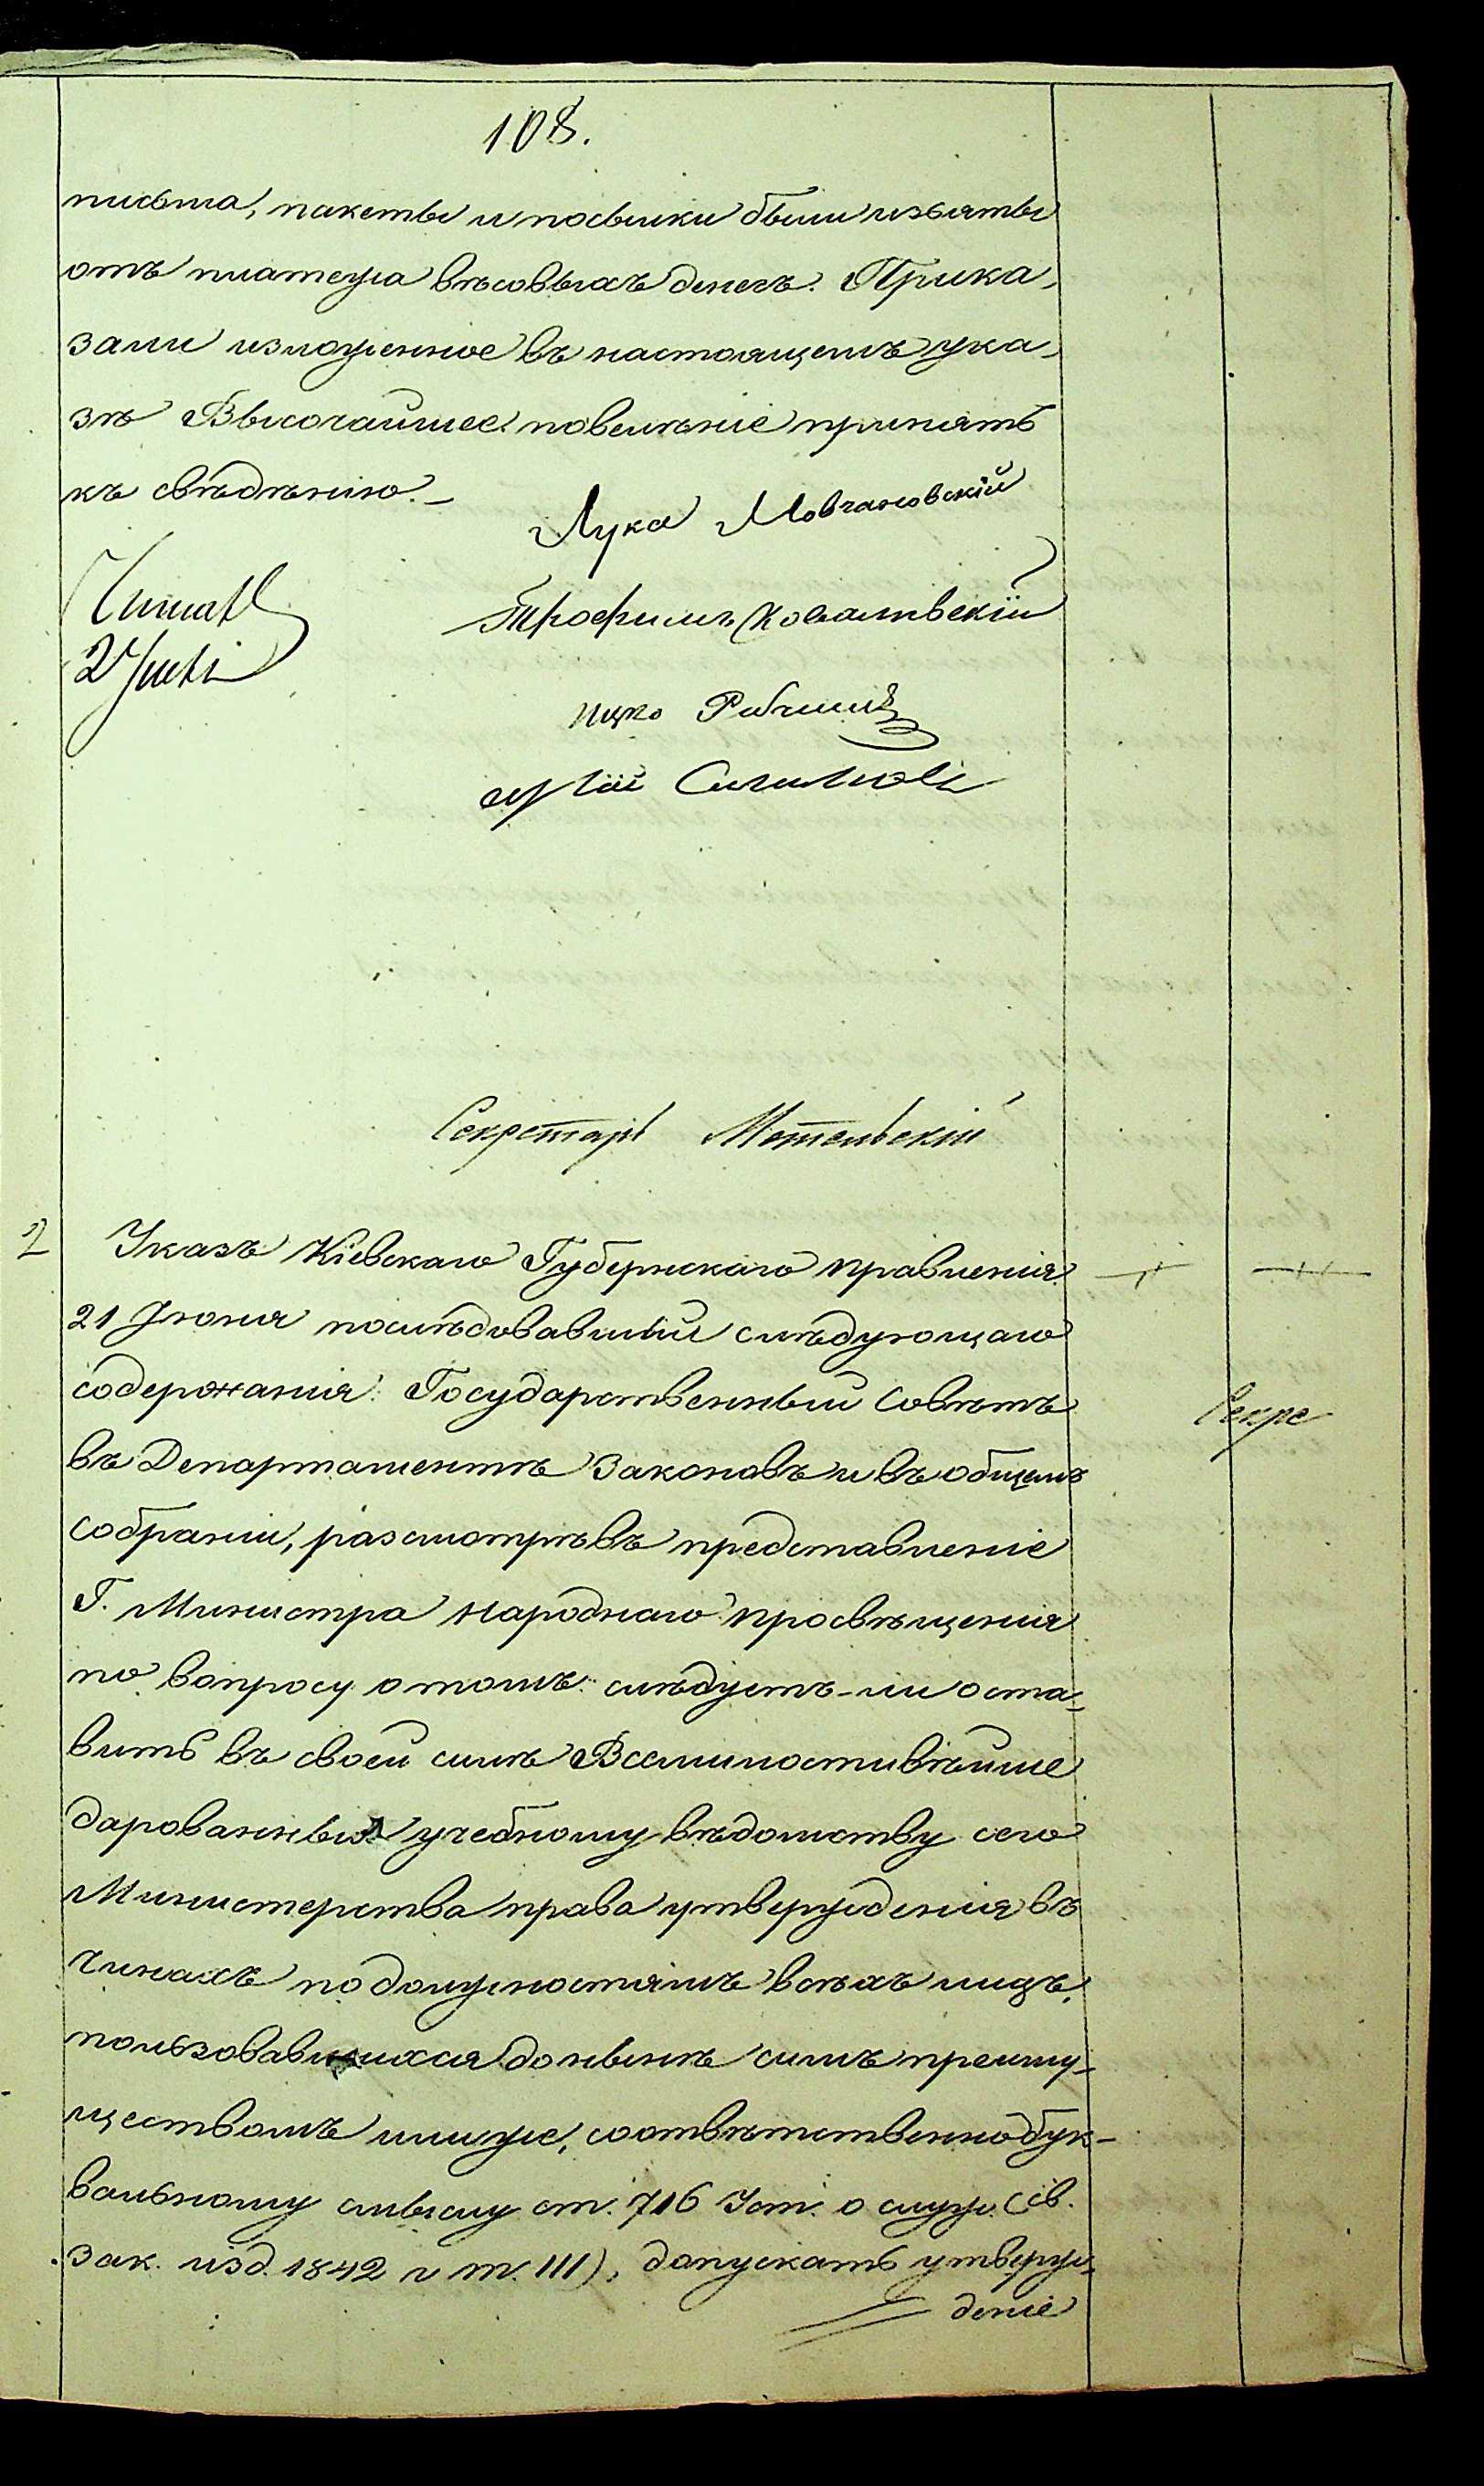 108.
письма, пакеты и посылки были изъяты
отъ платежа вѣсовыхъ денегъ. Прика-
зали изложенное въ настоящемъ ука-
зѣ Высочайшее повелѣніе принять
къ свѣдѣнію. –
Лука Мовчановскій
Трофимъ Ковалѣвскій
Секретарь Мотельскій
2 Указъ Кіевскаго Губернскаго Правленія
21 Іюня послѣдовавшій слѣдующаго
содержанія: Государственный Совѣтъ
въ Департаментѣ Законовъ и въ общемъ
собраніи, разсмотрѣвъ представленіе
Г. Министра Народнаго Просвѣщенія
по вопросу о томъ: слѣдуетъ-ли оста-
вить въ своей силѣ Всемилостивѣйше
дарованныя учебному вѣдомству сего
Министерства права утвержденія въ
чинахъ по должностямъ всѣхъ лицъ,
пользовавшихся донынѣ симъ преиму-
ществомъ или же, соотвѣтственно бук-
вальному смыслу ст. 716 Уст. о служ. (Св.
Зак. изд. 1842 г. т. III), допускать утверж-
деніе
Секре